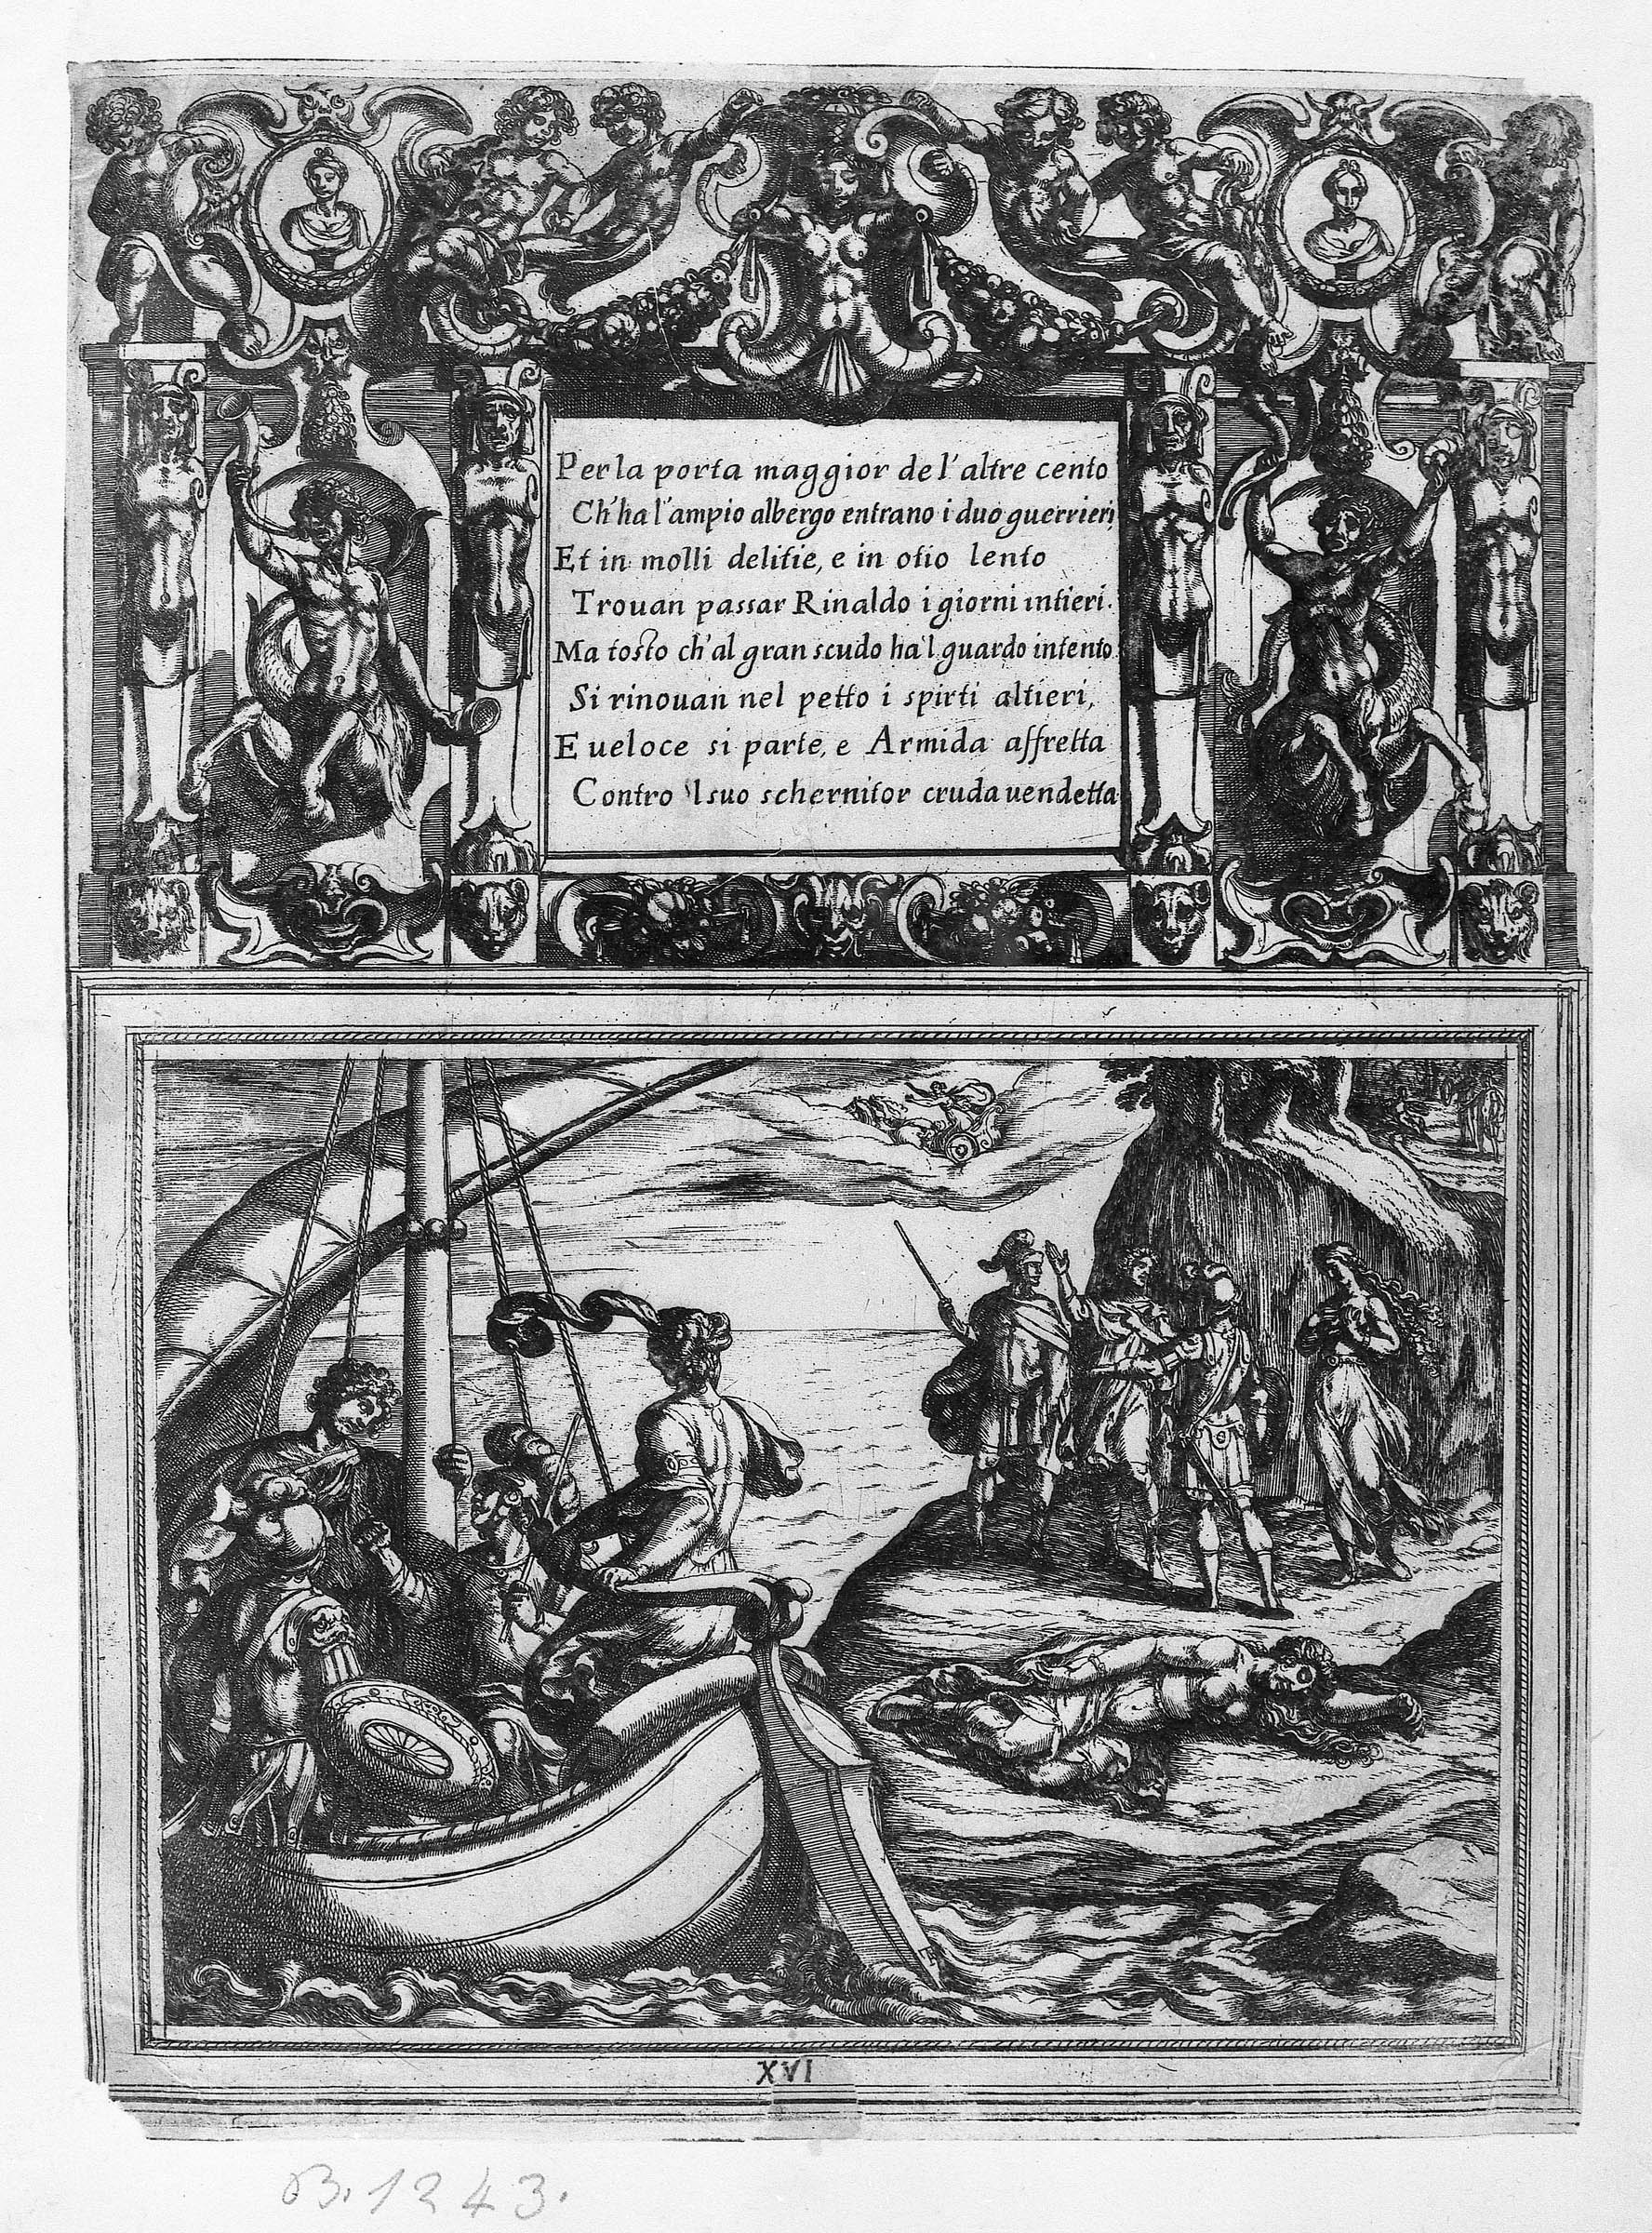 Per la porta maggior de l'altre cento
Ch'ha l'ampio albergo entrano i duo guerrieri,
Et in molli delitie, e in otio lento
Trouan passar Rinaldo i giorni intieri.
Ma tosto ch'al gran scudo ha'l guardo intento
Si rinouan nel petto i spirti altieri,
E ueloce si parte, e Armida affretta
Contro 'l suo schernitor cruda uendetta
XVI
B. 1243.